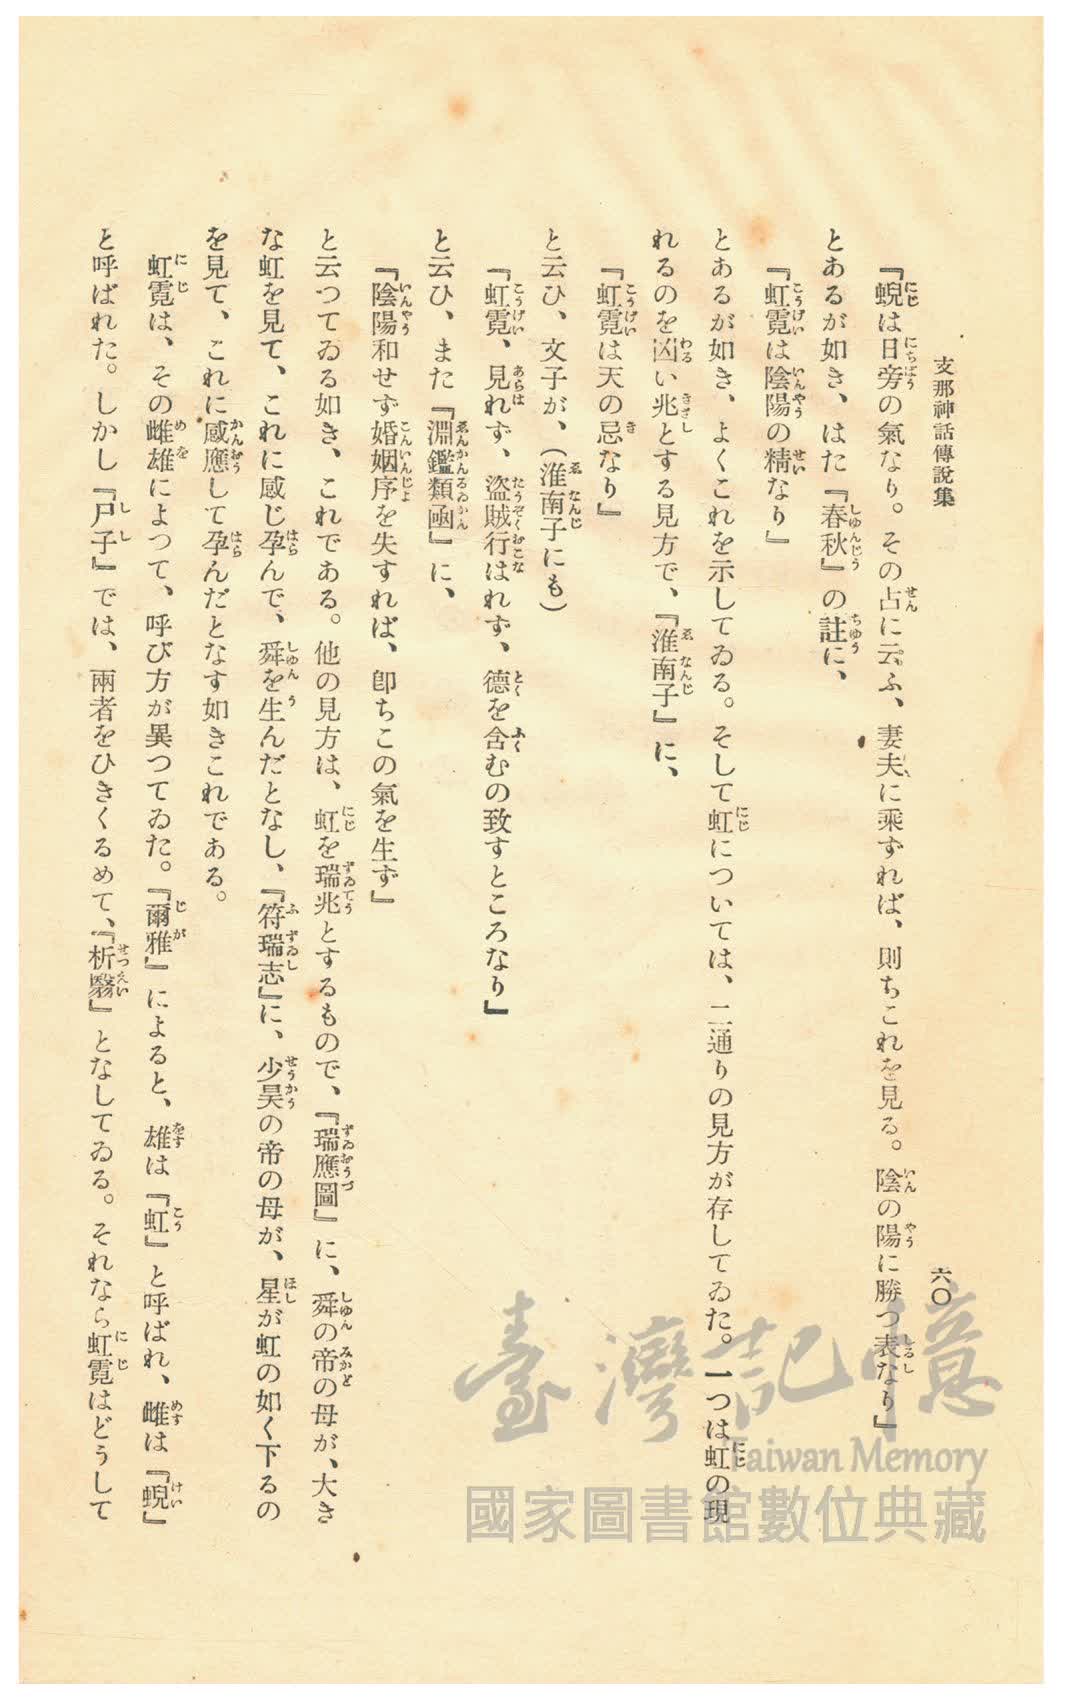 支那神話傳說集
六〇
『蜺は日旁の氣なり。その占に云ふ、妻夫に乘ずれば、則ちこれを見る。陰の陽に勝つ表なり』
とあるが如き、はた『春秋』の註に、
『虹霓は陰陽の精なり』
とあるが如き、よくこれを示してゐる。そして虹については、二通りの見方が存してゐた。一つは虹の現
れるのを凶い兆とする見方で、『淮南子』に、
『虹霓は天の忌なり』
と云ひ、文子が、(淮南子にも)
『虹霓、見れず、盜賊行はれず、德を含むの致すところなり』
と云ひ、また『淵鑑類凾』に、
『陰陽和せず婚姻序を失すれば、卽ちこの氣を生ず』
と云つてゐる如き、これである。他の見方は、虹を瑞兆とするもので、『瑞應圖』に、舜の帝の母が、大き
な虹を見て、これに感じ孕んで、舜を生んだとなし、『符瑞志』に、少昊の帝の母が、星が虹の如く下るの
を見て、これに感應して孕んだとなす如きこれである。
虹霓は、その雌雄によつて、呼び方が異つてゐた。『爾雅』によると、雄は『虹』と呼ばれ、雌は『蜺』
と呼ばれた。しかし『尸子』では、兩者をひきくるめて、『析翳』となしてゐる。それなら虹霓はどうして
臺灣記憶
Taiwan Memory
國家圖書館數位典藏